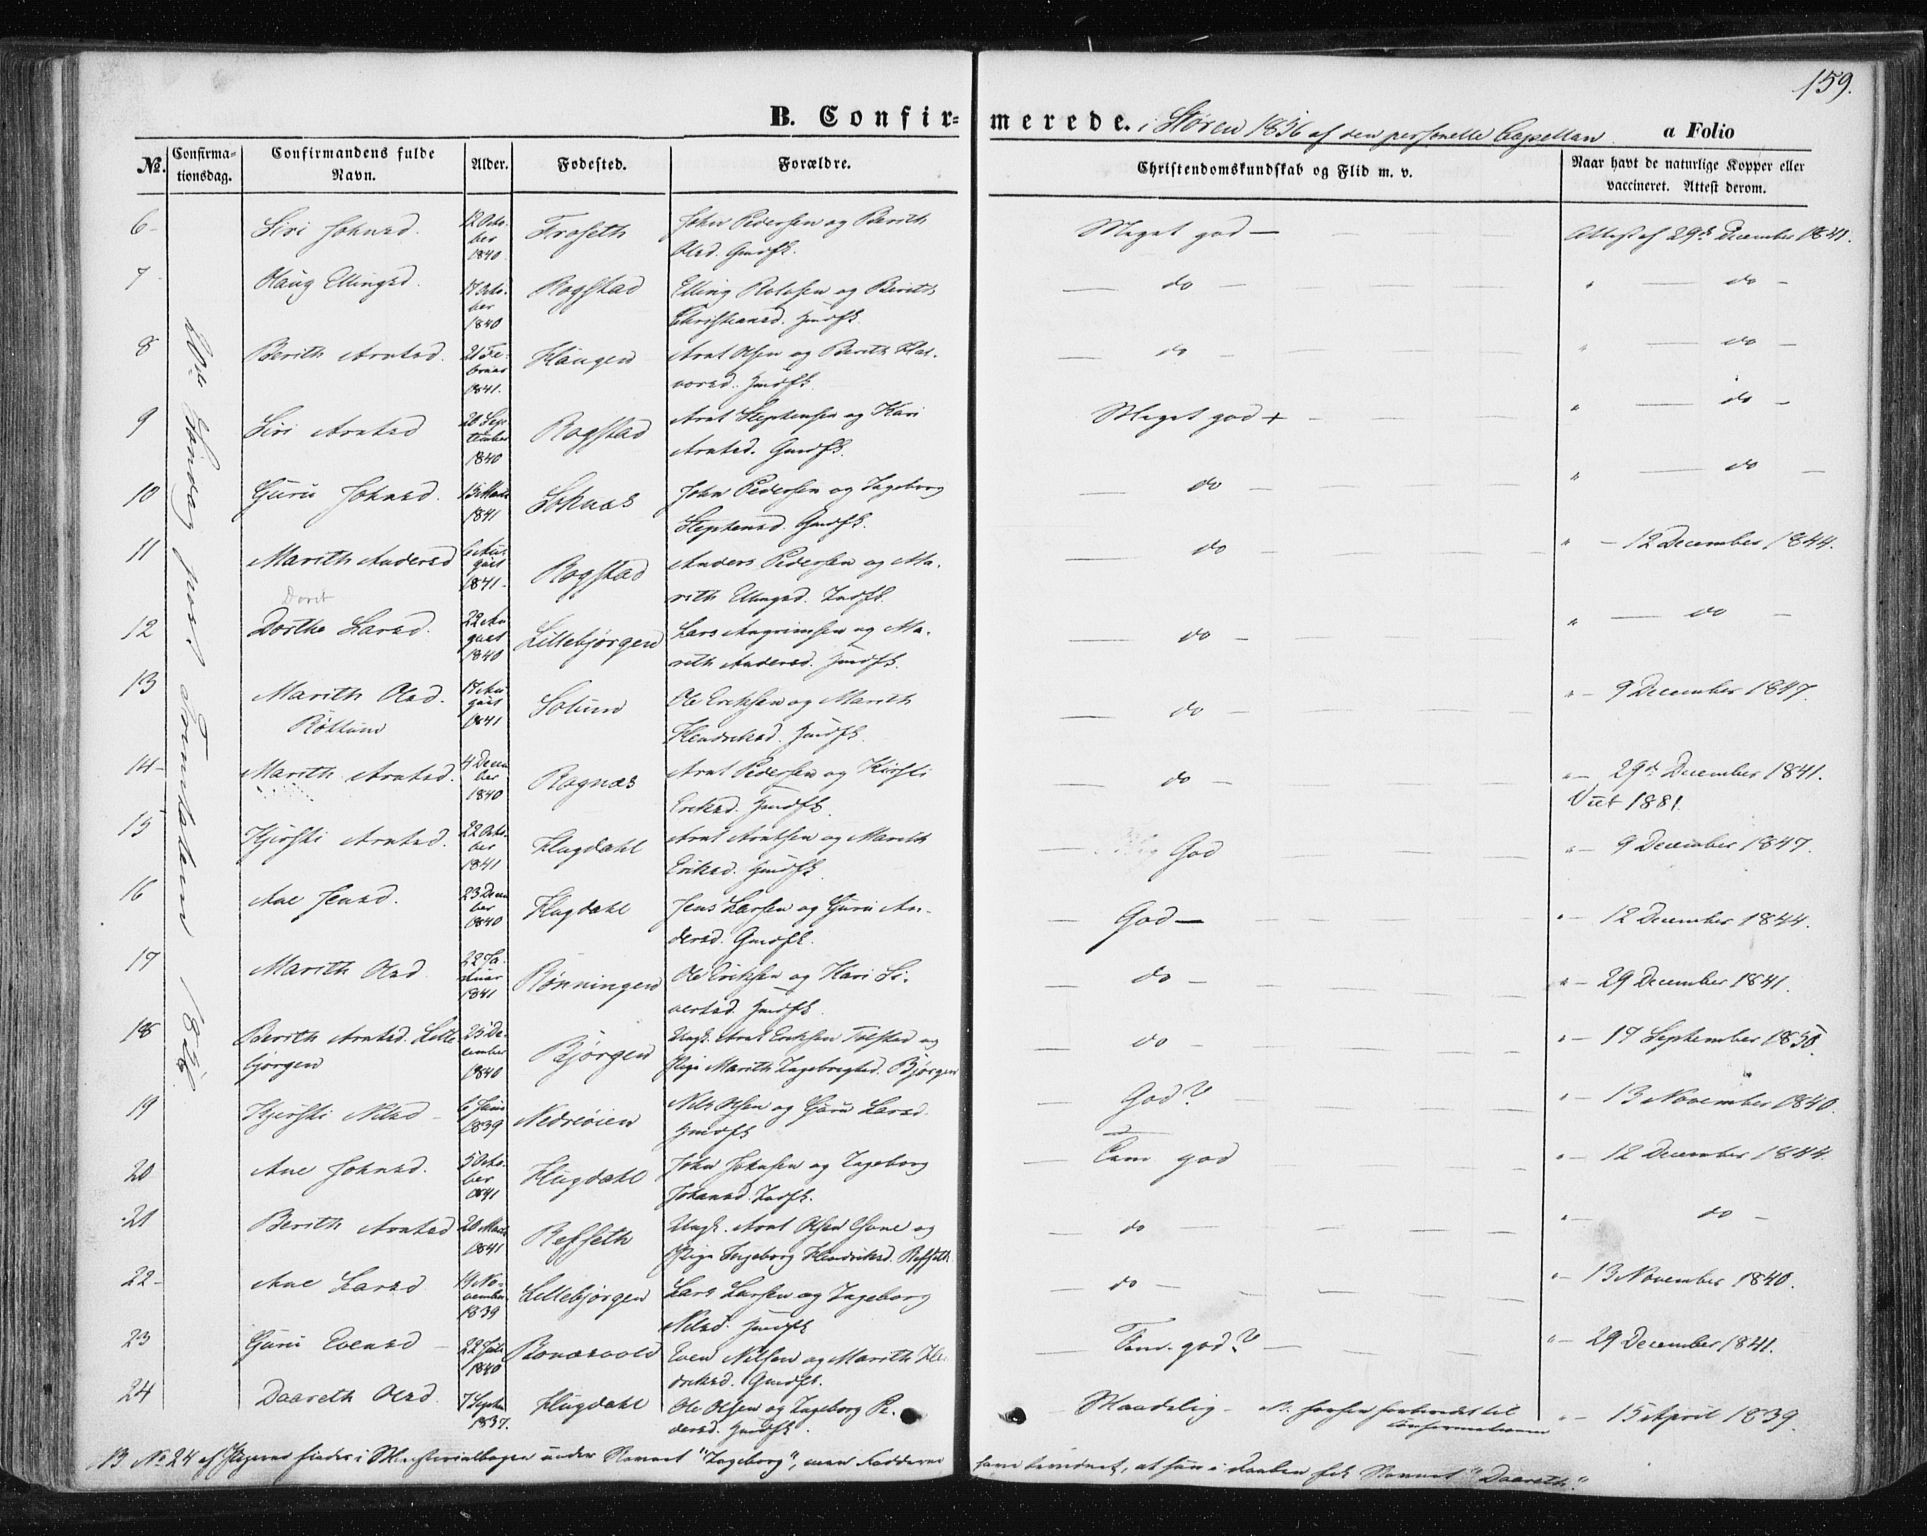 159.
B. Confir= merede. i Støren 1856 af den personelle Capellan a Folio
No. Confirmationsdag. Confirmandens fulde Navn. Alder. Fødested. Forældre. Christendomskundskab og Flid m. v. Naar havt de naturlige Kopper eller vaccineret. Attest derom.
20de Søndag post Trinitatem 1856
6 Siri Johnsd. 12 October 1840 Froseth John Pedersen og Berith Olsd. Gmdfk. Meget god — Attest af 29de December 1841.
7 Haug Ellingsd. 17 October 1840 Rogstad Elling Rolvsen og Berith Christiansd. Hmdfk. do — do —
8 Berith Arntsd. 21 Februar 1841. Haugen Arnt Olsen og Berith Halvorsd. Hmdfk. do — do —
9 Siri Arntsd 20 September 1840 Rogstad Arnt Stephensen og Kari Arntsd. Gmdfk. Meget god + do —
10 Guru Johnsd. 13 Marts 1841 Soknæs John Pedersen og Ingeborg Stephensd. Gmdfk. do — do —
11 Marith Andersd 6 August 1841. Rogstad Anders Pedersen og Marith Ellingsd. Indfk. do — 12 December 1844.
Doret
12 Dorthe Larsd. 22 August 1840 Lillebjørgen Lars Angrimsen og Marith Andersd. Hmdfk. do — do —
13 Marith Olsd. Røttum 17 August 1841 Solum Ole Eriksen og Marith Hendriksd. Hmdfk. do — 9 December 1847.
14 Marith Arntsd. 4 December 1840 Rognæs Arnt Pedersen og Kirsti Eriksd. Hmdfk. do — 29de December 1841. Udt 1881.
15 Kjersti Arntsd. 22 October 1841 Hugdahl Arnt Arntsen og Marith Eriksd. Hmdfk. God 9 December 1847.
16 Ane Jensd. 23 December 1840 Hugdahl Jens Larsen og Guru Andersd. Gmdfk. God — 12 December 1844.
17 Marith Olsd. 22 Januar 1841 Rønningen Ole Eriksen og Kari Sivertsd. Hmdfk. do — 29 December 1841.
18 Berith Arntsd. Lillebjørgen 25 December 1840 Bjørgen Ungk. Arnt Eriksen Tolstad og Pige Marith Ingebrigtsd. Bjørgen do — 17 September 1850.
19 Kjersti Nilsd — 6 Juni 1839 Nedreøien Nils Olsen og Guru Larsd. Hmdfk God? 13 November 1840.
20 Ane Johnsd. 5 October 1841 Hugdahl John Johnsen og Ingeborg Johansd. Indfk. Tem. god 12 December 1844.
21 Berith Arntsd 20 Marts 1841 Refseth Ungk. Arnt Olsen og Pige Ingeborg Hendriksd. Refseth do — do —
22 Ane Larsd 19 November 1839 Lillebjørgen Lars Larsen og Ingeborg Nilsd. Hmdfk do — 13 November 1840.
23 Guru Evensd — 22 Juli 1840 Bonæsvold Even Nilsen og Marith Hendriksd. Gmdfk. Tem. god? — 29 December 1841.
24 Daareth Olsd. 7 Septbr 1837. Hugdahl Ole Olsen og Ingeborg Pedersd. Hmdfk. Maadelig — forhen forberedt til Confirmationen 15 April 1839.
NB No 24 af Pigerne findes i Ministerialbogen under Navnet "Ingeborg", men Fadderne have bevidnet, at hun i Daaben fik Navnet "Daareth".